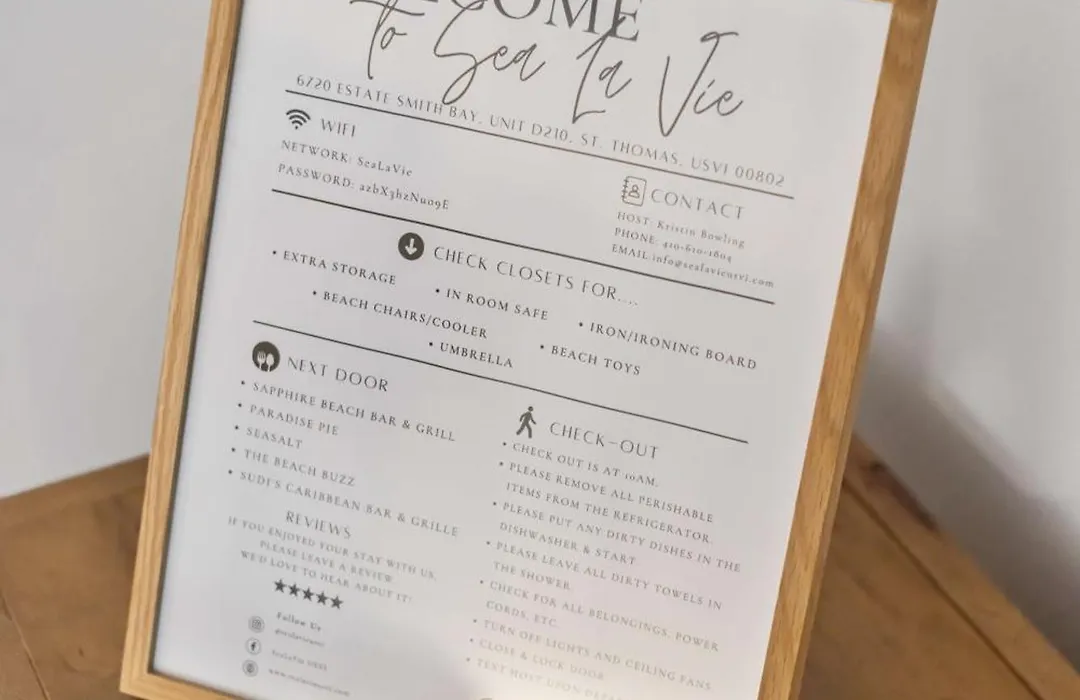 COME
To Sea La Vie
6720 ESTATE SMITH BAY, UNIT D210, ST. THOMAS, USVI 00802
WIFI
NETWORK: SeaLaVie
PASSWORD: azbX3hzNu09E
CONTACT
HOST: Kristin Bowling
PHONE: 410-610-1804
EMAIL info@sealavieusvi.com
CHECK CLOSETS FOR....
• EXTRA STORAGE
• IN ROOM SAFE
• IRON/IRONING BOARD
• BEACH CHAIRS/COOLER
• BEACH TOYS
• UMBRELLA
NEXT DOOR
• SAPPHIRE BEACH BAR & GRILL
• PARADISE PIE
• SEASALT
• THE BEACH BUZZ
• SUDI'S CARIBBEAN BAR & GRILLE
REVIEWS
IF YOU ENJOYED YOUR STAY WITH US,
PLEASE LEAVE A REVIEW.
WE'D LOVE TO HEAR ABOUT IT!
Follow Us
SeaLaVie USVI
CHECK-OUT
• CHECK OUT IS AT 10AM.
• PLEASE REMOVE ALL PERISHABLE
ITEMS FROM THE REFRIGERATOR.
• PLEASE PUT ANY DIRTY DISHES IN THE
DISHWASHER & START
• PLEASE LEAVE ALL DIRTY TOWELS IN
THE SHOWER
• CHECK FOR ALL BELONGINGS, POWER
CORDS, ETC.
• TURN OFF LIGHTS AND CEILING FANS
• CLOSE & LOCK DOOR
• TEXT HOST UPON